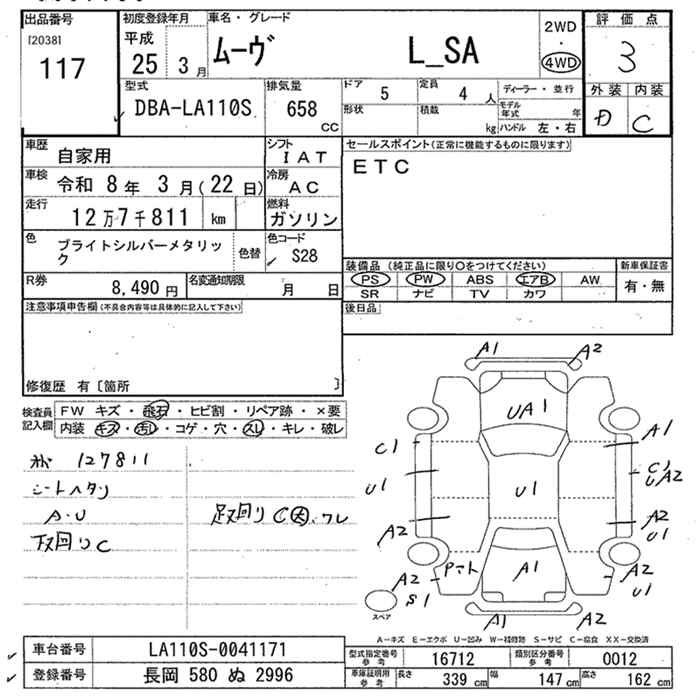 出品番号
[2038]
117
初度登録年月
平成
25 3月
車名・グレード
ムーヴ L_SA
2WD
・
4WD
評価点
3
外装 内装
D C
型式
DBA-LA110S
排気量
658
CC
ドア 5
定員 4 人
形状
積載 kg
ディーラー・並行
モデル年式 年
ハンドル 左・右
車歴
自家用
シフト
IAT
車検
令和 8年 3月(22日)
冷房
AC
走行
12万7千811 km
燃料
ガソリン
色
ブライトシルバーメタリック
色替
色コード
S28
R券
8,490円
名変通知期限
月 日
セールスポイント(正常に機能するものに限ります)
ETC
装備品 (純正品に限り○をつけてください)
PS PW ABS エアB AW
SR ナビ TV カワ
新車保証書
有・無
後日品
注意事項申告欄(不具合内容等は具体的に記入して下さい)
修復歴 有〔箇所 〕
検査員記入欄
FW キズ・飛石・ヒビ割・リペア跡・×要
内装 キズ・汚レ・コゲ・穴・スレ・キレ・破レ
127811
シートヘタリ
A・U
下回りC
足回りC大・ワレ
A1 A2
UA1
C1
A1
U1
U1
C1
UA2
A2
A2
U1
Pマト
A1
A2
S1
A2
U1
スペア
A1 A2
A-キズ E-エクボ U-凹み W-補修跡 S-サビ C-腐食 XX-交換済
車台番号
LA110S-0041171
登録番号
長岡 580 ぬ 2996
型式指定番号
参考
16712
類別区分番号
参考
0012
車庫証明用
参考
長さ 339 cm
幅 147 cm
高さ 162 cm